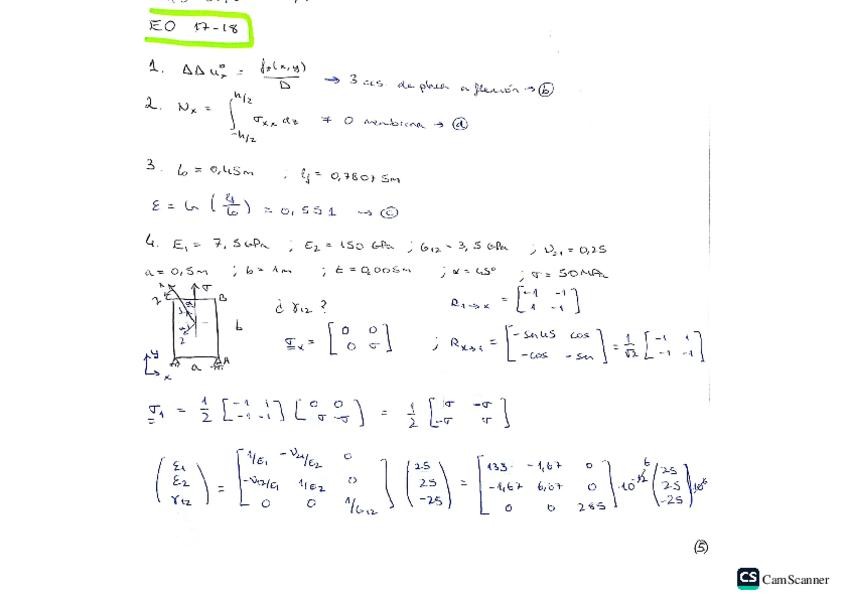 EO 17-18
1. ΔΔu_z° = f_z(x,y)/D → 3 ecs. de placa a flexión → ⓑ
2. N_x = ∫_{-h/2}^{h/2} σ_xx dz ≠ 0 membrana → ⓓ
3. l_0 = 0,45m ; l_f = 0,7807 5m
ε = ln (l_f/l_0) = 0,551 → ⓒ
4. E_1 = 7,5 GPa ; E_2 = 150 GPa ; G_12 = 3,5 GPa ; ν_21 = 0,25
a = 0,5m ; b = 1m ; t = 0,005m ; α = 45° ; σ = 50MPa
1 σ
2 B
¿ γ_12 ? R_1→x = [-1 -1; 1 -1]
b
σ_x = [0 0; 0 σ] ; R_x→1 = [-sen45 cos; -cos -sen] = 1/√2 [-1 1; -1 -1]
2
y x a A
σ_1 = 1/2 [-1 1; -1 -1] [0 0; σ -σ] = 1/2 [σ -σ; -σ σ]
(ε_1; ε_2; γ_12) = [1/E_1 -ν_21/E_2 0; -ν_12/E_1 1/E_2 0; 0 0 1/G_12] (25; 25; -25) = [133 -1,67 0; -1,67 6,67 0; 0 0 285] (25; 25; -25) 10^6
(5)
CS CamScanner